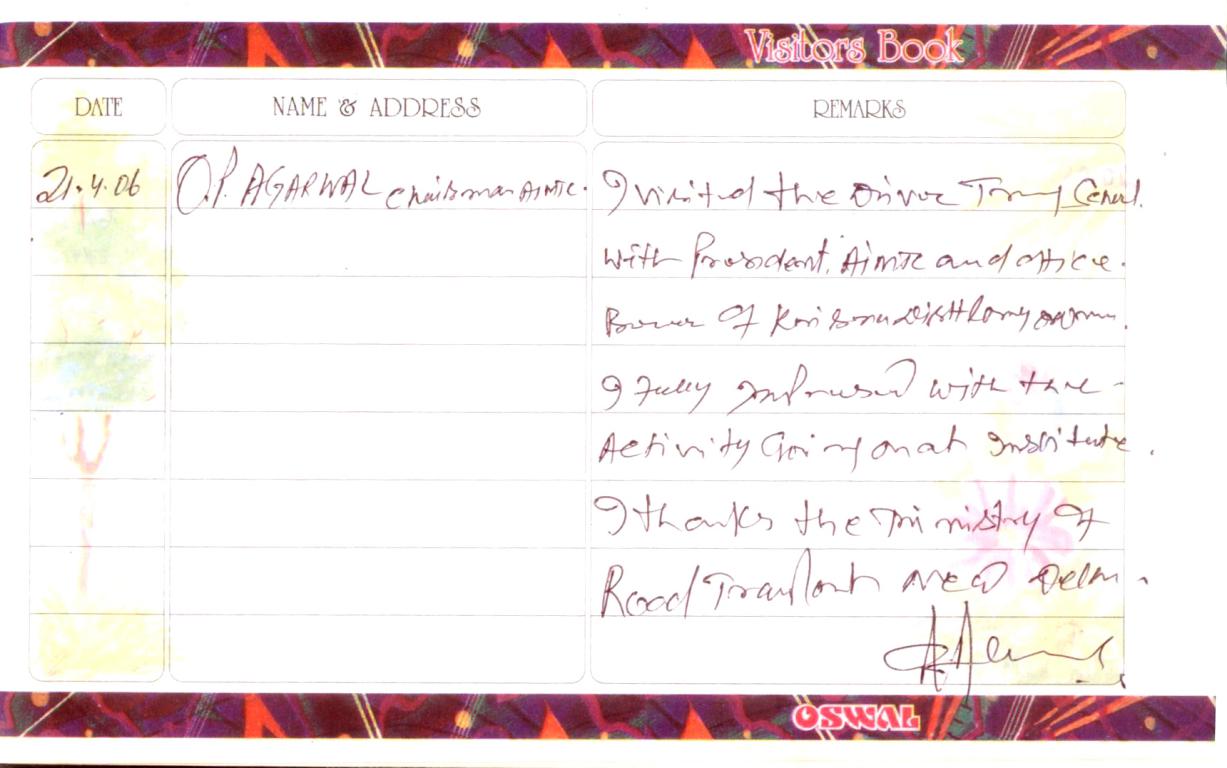 Visitors Book
DATE
NAME & ADDRESS
REMARKS
21.4.06
O.P. AGARWAL Chairman AIMTC.
I visited the Driver Trang Center.
with President, AIMTC and office
Barer Of
I Fully Impressed with the
Activity Going on at Institute.
I thanks the Ministry Of
Road Transport New Delhi.
OSWAL